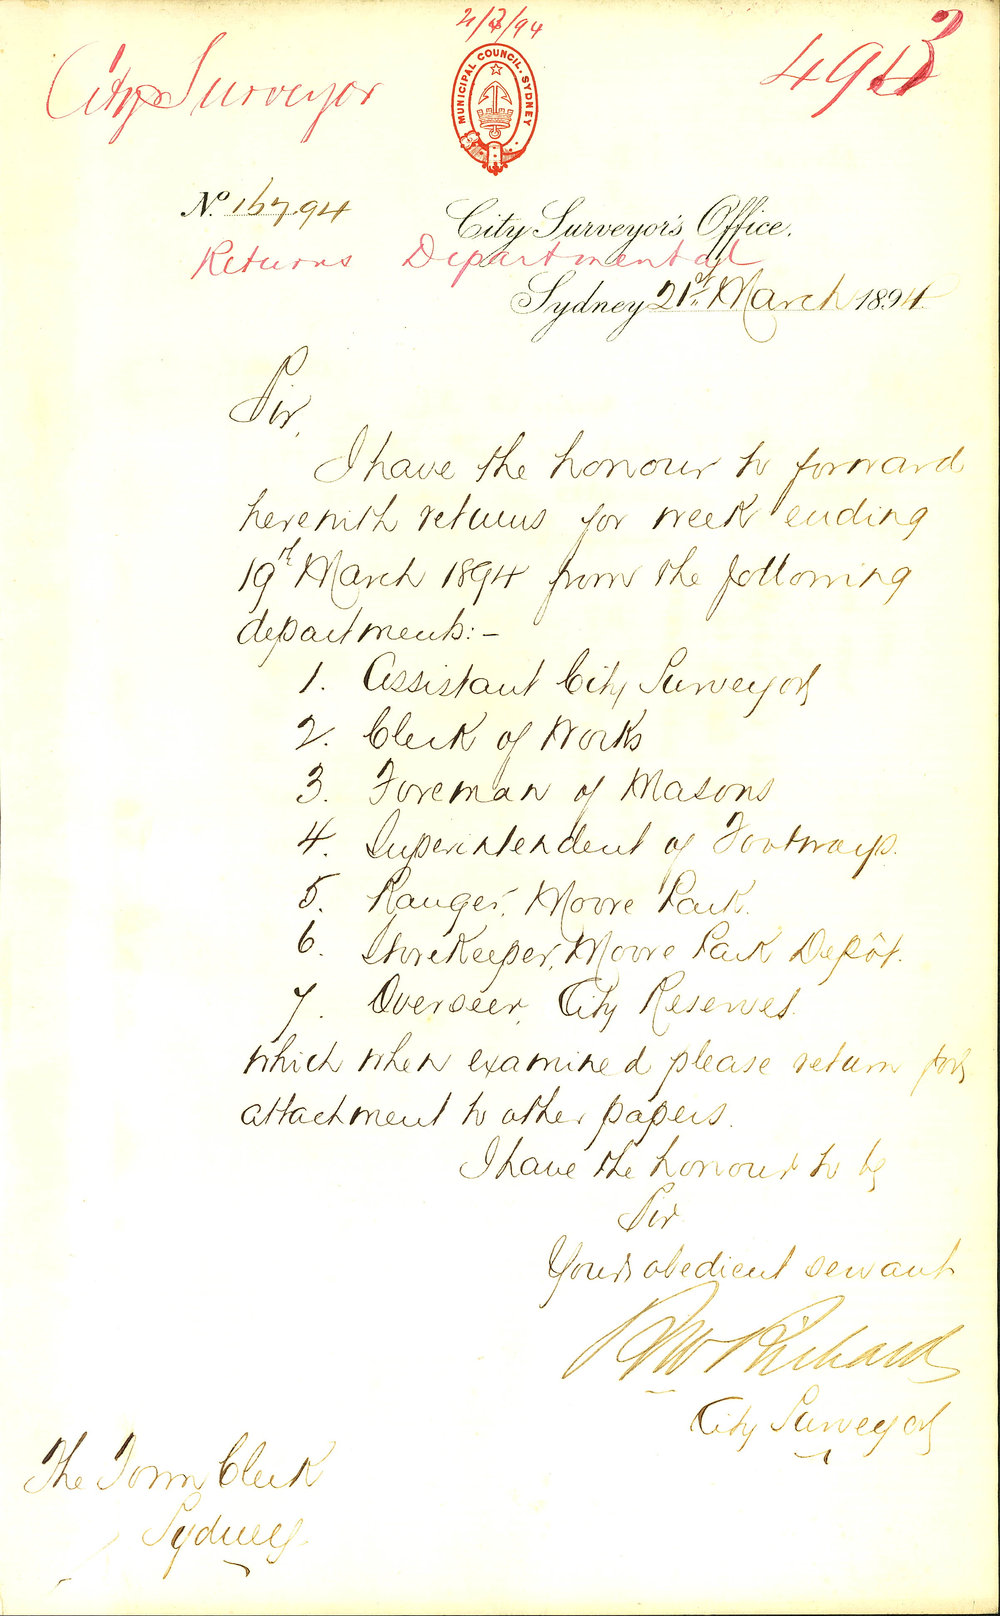 City Surveyor
MUNICIPAL COUNCIL. SYDNEY
No. 167.94
City Surveyor's Office.
Returns Departmental
Sydney 21st March 1894
Sir,
I have the honour to forward
herewith returns for week ending
19th March 1894 from the following
departments:-
1. Assistant City Surveyor
2. Clerk of Works
3. Foreman of Masons
4. Superintendent of Footways.
5. Ranger, Moore Park.
6. Storekeeper, Moore Park Depôt.
7. Overseer, City Reserves.
which when examined please return for
attachment to other papers.
I have the honour to be
Sir
Your obedient servant
Richards
City Surveyor
The Town Clerk
Sydney